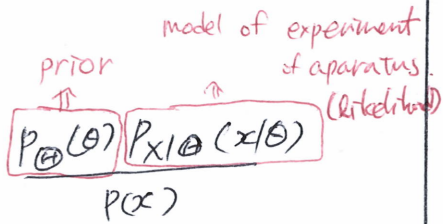 model of experiment
prior
of aparatus.
(likelihood)
P_Θ(θ) P_X|Θ(x|θ)
P(x)